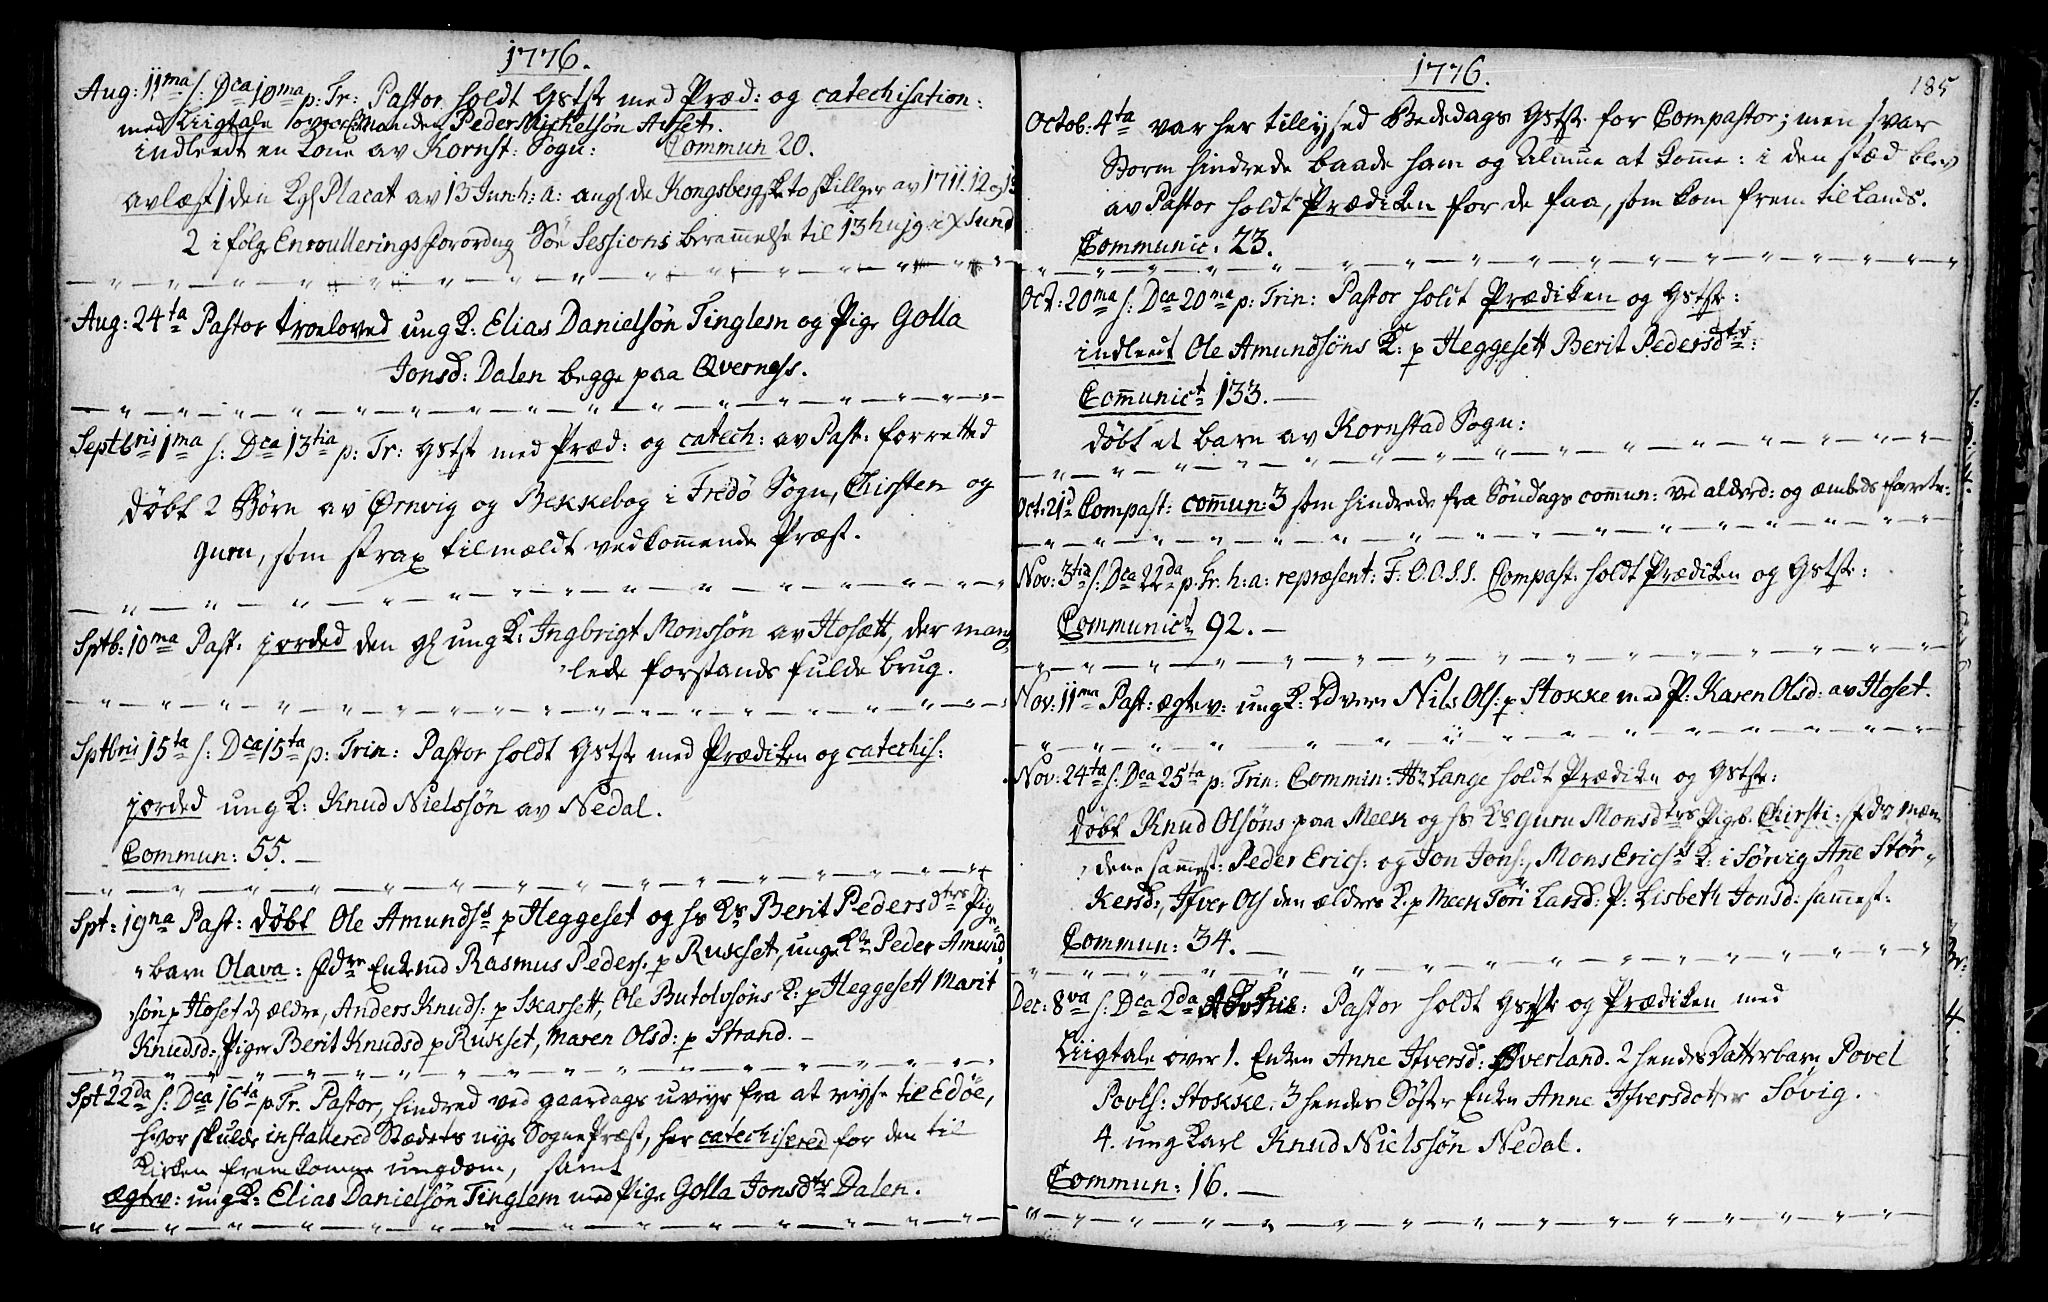 1776.
Aug: 11ma s: Dca 10ma p: Tr: Pastor holdt Gstste med Præd: og catechisation:
med Liigtale over Manden Peder Mickelsøn Aset.
indleedt en Kone av Kornst: Sogn: Commun 20.
avlæst 1 den Kgl Placat av 13 Jun: h: a: angl de Kongsbergske to skillger av 1711. 12 og 13
2 i følge Enroullerings forordng Søe Sessions berammelse til 13 hujg. i X Sund
Aug: 24ta Pastor troeloved ung K: Elias Danielsøn Tinglem og Pige Golla
Jonsd: Dalen begge paa Qverness.
Septbris 1ma s: Dca 13tia p: Tr: Gstst med Præd: og catech: av Past: forretted
døbt 2 Børn av Ørnvig og Bekkebog i Fredø Sogn, Chirsten og
Guru, som strax tilmældt vedkommende Præst.
Sptb: 10ma Past: jorded den gl ung K: Ingbrigt Monssøn av Hosætt, der mang
lede forstands fulde brug.
Sptbris 15ta s: Dca 15ta p: Trin: Pastor holdt Gstst med Prædiken og catechis:
jorded ung K: Knud Nielssøn av Nedal.
Commun: 55. —
Spt: 19na Past: døbt Ole Amundss p Heggeset og hs Ks Berit Pedersdtrs Pige
barn Olava: Fdre Enkemd Rasmus Peders. p Rukset, unge Kle Peder Amund
søn p Hoset d ældre, Anders Knuds: p Skarsett, Ole Butolvsøns K: p Heggesett Marit
Knudsd: Piger Berit Knudsd p Rukset, Maren Olsd: p Strand. —
Spt 22da s: Dca 16ta p Tr. Pastor, hindred ved gaardags uveyr fra at reyse til Edøe,
hvor skulde installered Stædets nye Sogne Præst, her catechisered for den til
Kirken fremkomne ungdom, samt
ægtev: ung K: Elias Danielsøn Tinglem med Pige Golla Jonsdtr Dalen.
1776.
185
Octob: 4ta var her tillysed Bededags Gstste for Compastor; men svar
Storm hindrede baade ham og Almue at komme: i den stæd blev
av Pastor holdt Prædiken for de faa, som kom frem til Lands.
Communic: 23.
Oct: 20ma s: Dca 20ma p: Trin: Pastor holdt Prædiken og Gstste:
indleedt Ole Amundsøns K: p Heggesett Berit Pedersdtr:
Communict 133. —
døbt et barn av Kornstad Sogn:
Oct: 21d Compast: commun: 3 som hindrede fra Søndags commun: ved alderd: og
Nov: 3tia s: Dca 22da p. Tr. h: a: repræsent: F: O. O. S. S. Compast: holdt Prædiken og Gstste:
Communict 92. —
Nov: 11ma Past: ægtev: ung K: Nils Ols: p Stokke med P: Karen Olsd: av Hoset.
Nov: 24ta s: Dca 25ta p: Trin: Commin: Hr Lange holdt Prædiken og Gstste:
døbt Knud Olsøns paa Meek og hs Ks Guru Monsdtrs Pigeb. Chirsti: Fdr Mæn
dene sammest: Peder Erics: og Jon Jons:, Mons Ericss K: i Sørvig Ane Stør
kersd:, Ifver Ols den ældres K. p Meek Tøri Larsd: P: Lisbeth Jonsd: sammest:
Commun: 34. —
Dec: 8va s: Dca 2da Pastor holdt Gstste og Prædiken med
Liigtale over 1. Enken Anne Ifversd: Øverland. 2 hendes Datterbarn Povel
Povls: Stokke: 3 hendes Søster Enken Anne Ifversdotter Søvig.
4. ung Karl Knud Nielssøn Nedal.
Commun: 16. —